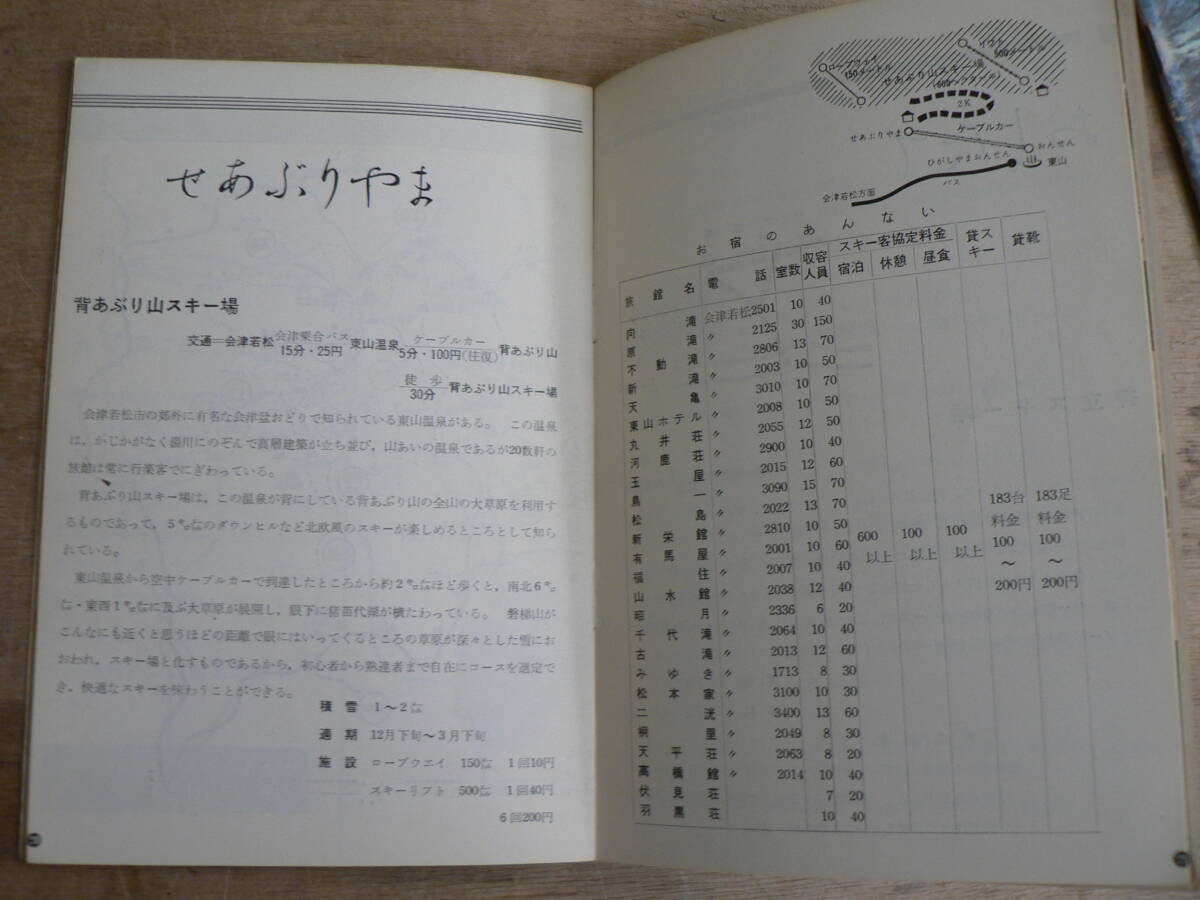 せあぶりやま
背あぶり山スキー場
交通＝会津若松 会津乗合バス 15分・25円 東山温泉 ケーブルカー 5分・100円(往復) 背あぶり山
徒歩 30分 背あぶり山スキー場
会津若松市の郊外に有名な会津盆おどりで知られている東山温泉がある。 この温泉
は，かじかがなく湯川にのぞんで高層建築が立ち並び，山あいの温泉であるが20数軒の
旅館は常に行楽客でにぎわっている。
背あぶり山スキー場は，この温泉が背にしている背あぶり山の全山の大草原を利用す
るものであって，5㌔㍍のダウンヒルなど北欧風のスキーが楽しめるところとして知ら
れている。
東山温泉から空中ケーブルカーで到達したところから約2㌔㍍ほど歩くと，南北6㌔
㍍・東西1㌔㍍に及ぶ大草原が展開し，眼下に猪苗代湖が横たわっている。 磐梯山が
こんなにも近くと思うほどの距離で眼にはいってくるところの草原が深々とした雪にお
おわれ，スキー場と化すものであるから，初心者から熟達者まで自在にコースを選定で
き，快適なスキーを味わうことができる。
積雪 1～2㍍
適期 12月下旬～3月下旬
施設 ロープウエイ 150㍍ 1回10円
スキーリフト 500㍍ 1回40円
6回200円
ロープウェイ
150メートル
リフト
500メートル
せあぶり山スキー場
2K
せあぶりやま
ケーブルカー
おんせん
ひがしやまおんせん
東山
バス
会津若松方面
お宿のあんない
旅館名 電話 室数 収容人員 スキー客協定料金 宿泊 休憩 昼食 貸スキー 貸靴
向滝 会津若松2501 10 40
原滝 〃 2125 30 150
不動滝 〃 2806 13 70
新滝 〃 2003 10 50
天亀 〃 3010 10 70
東山ホテル 〃 2008 10 50
丸井荘 〃 2055 12 50
河鹿荘 〃 2900 10 40
玉屋 〃 2015 12 60
鳥一 〃 3090 15 70
松島 〃 2022 13 70
新栄館 〃 2810 10 50
有馬屋 〃 2001 10 60
福住 〃 2007 10 40
山水館 〃 2038 12 40
昭月 〃 2336 6 20
千代滝 〃 2064 10 40
古滝 〃 2013 12 60
みゆき 〃 1713 8 30
松本家 〃 3100 10 30
二洸 〃 3400 13 60
桐里 〃 2049 8 30
天平荘 〃 2063 8 20
高橋館 〃 2014 10 40
伏見荘 7 20
羽黒荘 10 40
600以上 100以上 100以上
183台 料金 100～200円
183足 料金 100～200円